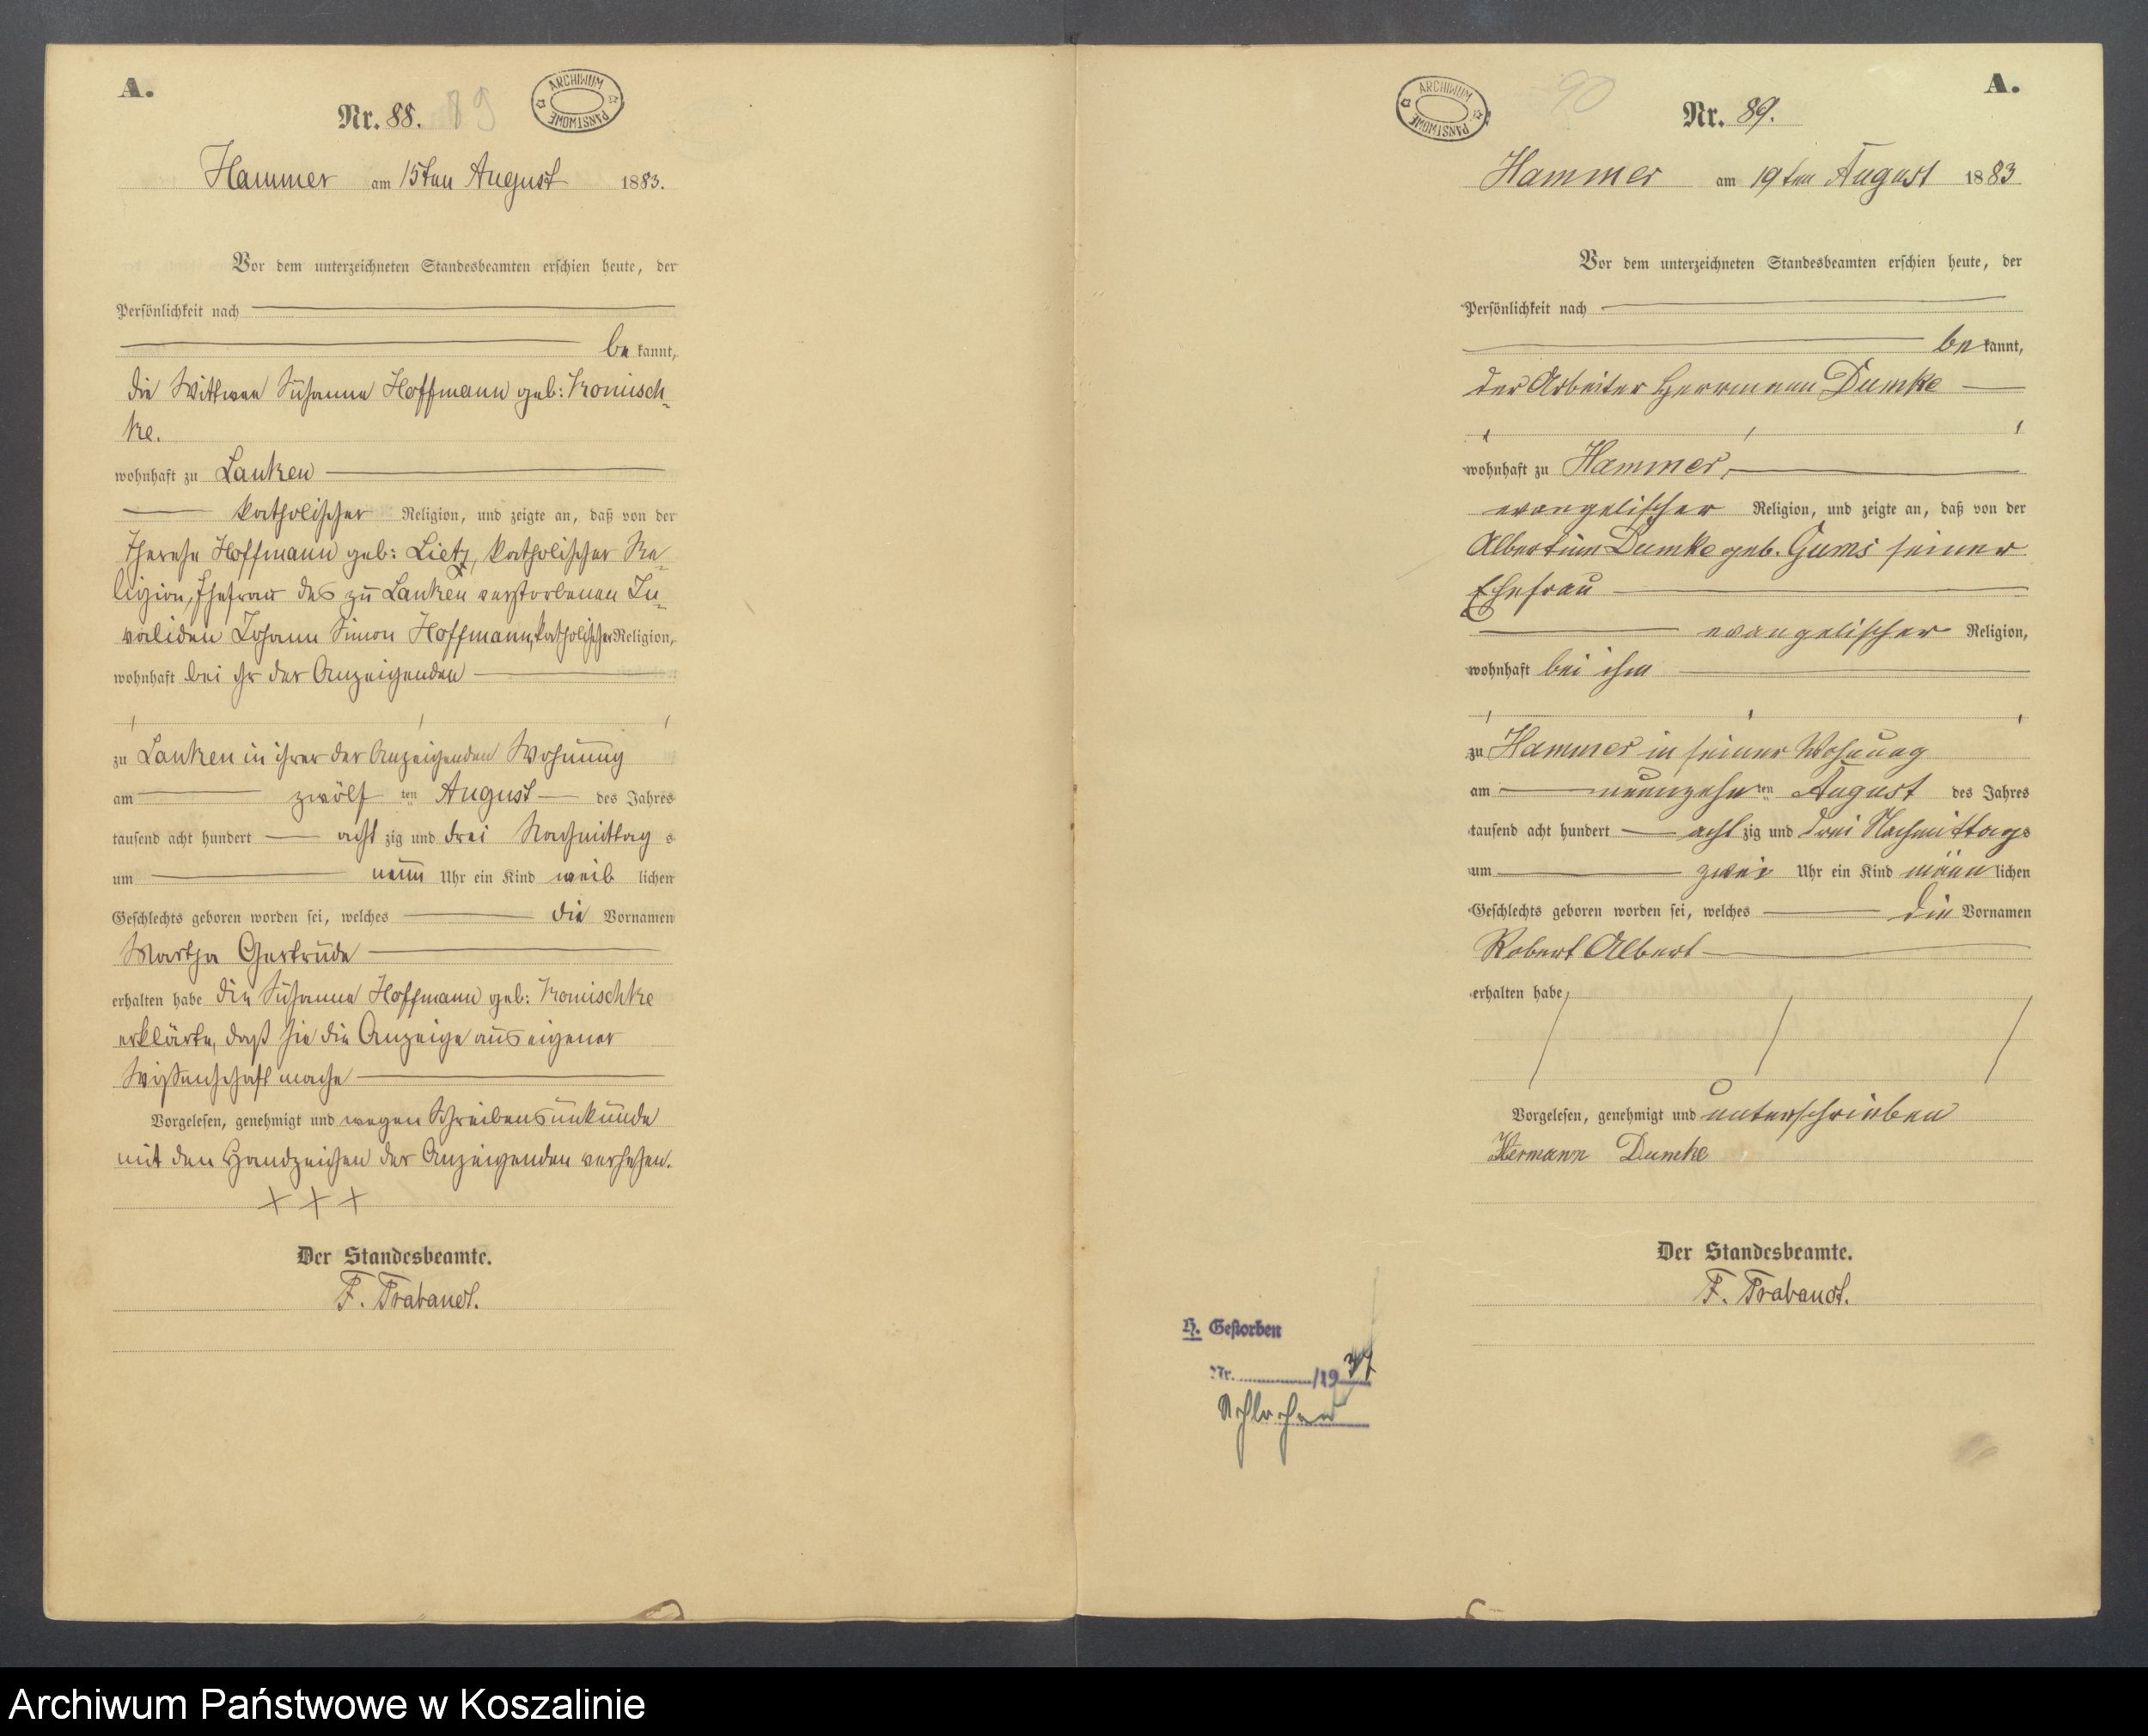 A.
Nr. 88. 89
ARCHIWUM PAŃSTWOWE
Hammer am 15ten August 1883.
Vor dem unterzeichneten Standesbeamten erschien heute, der
Persönlichkeit nach
be kannt,
die Wittwe Susanna Hoffmann geb: Kromisch-
ke.
wohnhaft zu Lanken
katholischer Religion, und zeigte an, daß von der
Therese Hoffmann geb: Lietz, katholischer Re-
ligion, Ehefrau des zu Lanken verstorbenen In-
validen Johann Simon Hoffmann, katholischer Religion,
wohnhaft bei ihr der Anzeigenden
zu Lanken in ihrer der Anzeigenden Wohnung
am zwölf ten August des Jahres
tausend acht hundert acht zig und drei Nachmittag s
um neun Uhr ein Kind weib lichen
Geschlechts geboren worden sei, welches die Vornamen
Martha Gertrude
erhalten habe die Susanna Hoffmann geb: Kromischke
erklärte, daß sie die Anzeige aus eigener
Wissenschaft mache
Vorgelesen, genehmigt und wegen Schreibensunkunde
mit den Handzeichen der Anzeigenden versehen.
+ + +
Der Standesbeamte.
F. Trabandt.
A.
90
ARCHIWUM PAŃSTWOWE
Nr. 89.
Hammer am 19ten August 1883
Vor dem unterzeichneten Standesbeamten erschien heute, der
Persönlichkeit nach
be kannt,
der Arbeiter Herrmann Dumke
wohnhaft zu Hammer,
evangelischer Religion, und zeigte an, daß von der
Albertine Dumke geb. Gums seiner
Ehefrau
evangelischer Religion,
wohnhaft bei ihm
zu Hammer in seiner Wohnung
am neunzehn ten August des Jahres
tausend acht hundert acht zig und drei Nachmittags
um zwei Uhr ein Kind männ lichen
Geschlechts geboren worden sei, welches die Vornamen
Robert Albert
erhalten habe
Vorgelesen, genehmigt und unterschrieben
Hermann Dumke
Der Standesbeamte.
F. Trabandt.
H. Gestorben
Nr. /1937
Schlochau
Archiwum Państwowe w Koszalinie